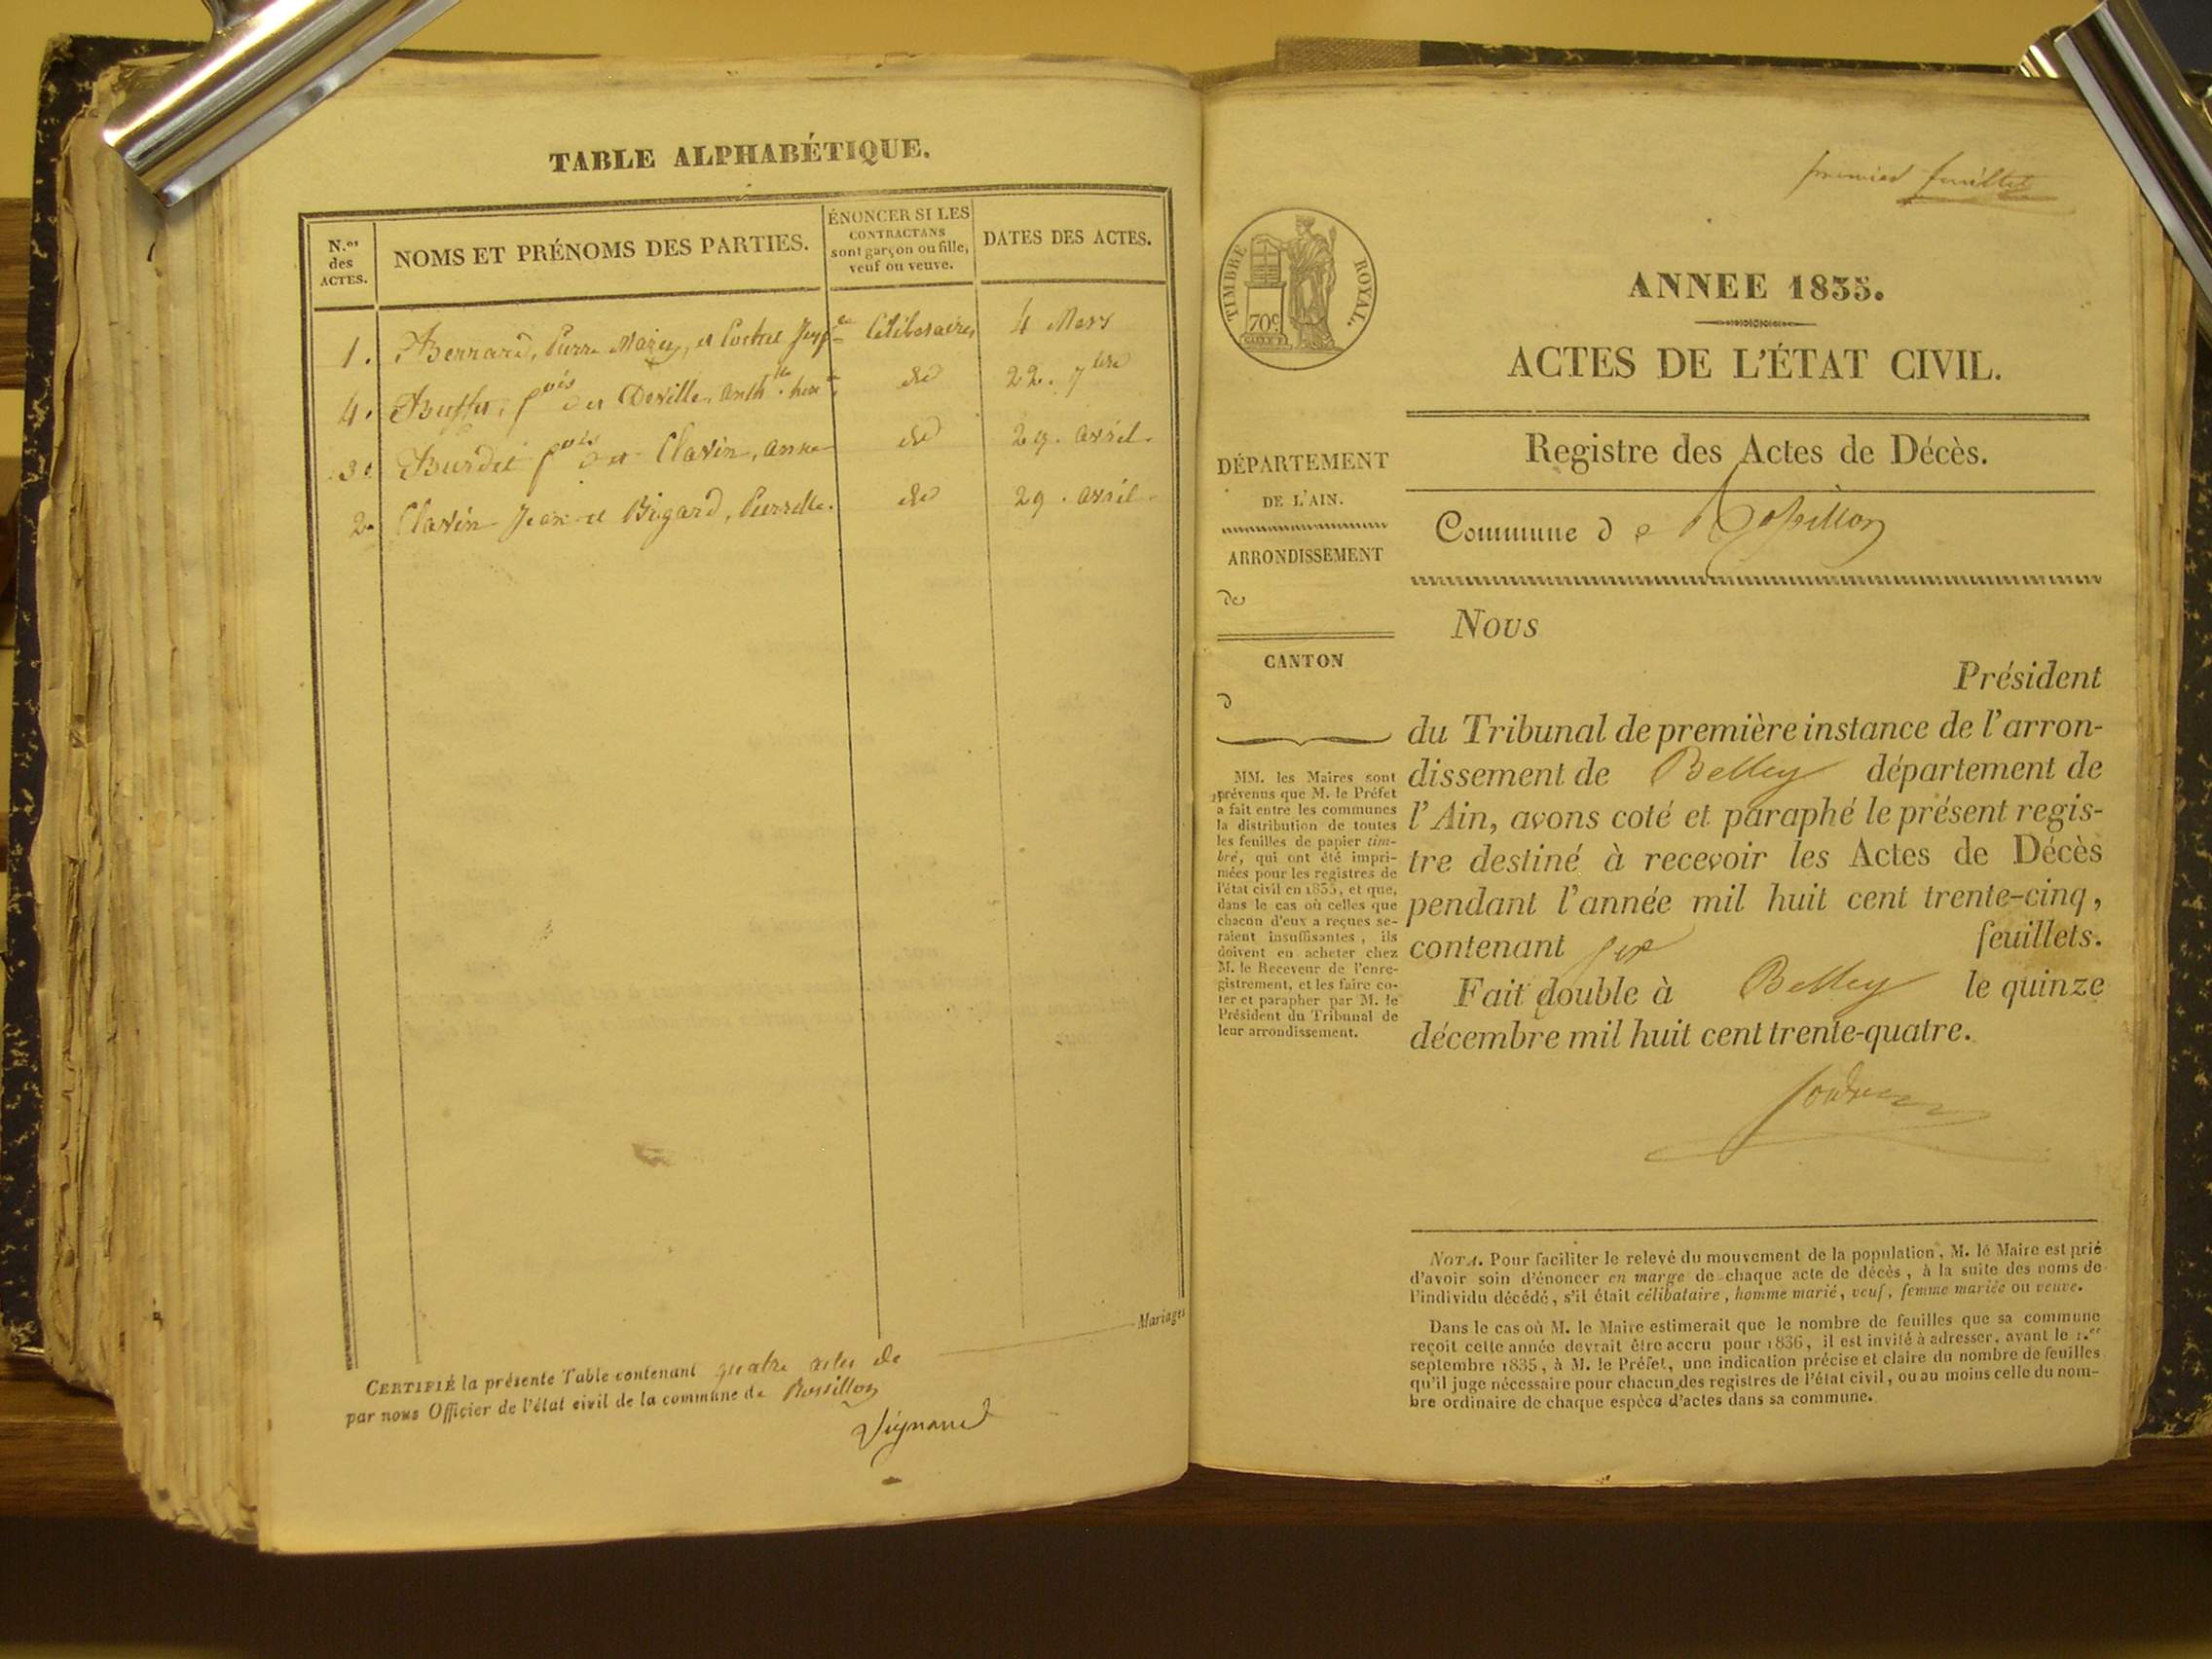 TABLE ALPHABÉTIQUE.
N.os des ACTES.
NOMS ET PRÉNOMS DES PARTIES.
ÉNONCER SI LES CONTRACTANS sont garçon ou fille, veuf ou veuve.
DATES DES ACTES.
1. Berrard, Pierre et Célibataires 4 Mars
4. fçois et Deville, do 22. 7bre
3. Burdet fçois et Clavin, anne do 29. avril.
2. Clavin Jean et Bigard, Pierrette. do 29. avril.
Mariages
CERTIFIÉ la présente Table contenant quatre actes de
par nous Officier de l'état civil de la commune de Rossillon
Vignaud
premier feuillet
TIMBRE ROYAL.
70c
ANNEE 1835.
ACTES DE L'ÉTAT CIVIL.
Registre des Actes de Décès.
Commune de Rossillon
DÉPARTEMENT
DE L'AIN.
ARRONDISSEMENT
de
CANTON
d
MM. les Maires sont
prévenus que M. le Préfet
a fait entre les communes
la distribution de toutes
les feuilles de papier tim-
bré, qui ont été impri-
mées pour les registres de
l'état civil en 1835, et que,
dans le cas où celles que
chacun d'eux a reçues se-
raient insuffisantes, ils
doivent en acheter chez
M. le Receveur de l'enre-
gistrement, et les faire co-
ter et parapher par M. le
Président du Tribunal de
leur arrondissement.
Nous
Président
du Tribunal de première instance de l'arron-
dissement de Belley département de
l'Ain, avons coté et paraphé le présent regis-
tre destiné à recevoir les Actes de Décès
pendant l'année mil huit cent trente-cinq,
contenant six feuillets.
Fait double à Belley le quinze
décembre mil huit cent trente-quatre.
NOTA. Pour faciliter le relevé du mouvement de la population, M. le Maire est prié
d'avoir soin d'énoncer en marge de chaque acte de décès, à la suite des noms de
l'individu décédé, s'il était célibataire, homme marié, veuf, femme mariée ou veuve.
Dans le cas où M. le Maire estimerait que le nombre de feuilles que sa commune
reçoit cette année devrait être accru pour 1836, il est invité à adresser, avant le 1.er
septembre 1835, à M. le Préfet, une indication précise et claire du nombre de feuilles
qu'il juge nécessaire pour chacun des registres de l'état civil, ou au moins celle du nom-
bre ordinaire de chaque espèce d'actes dans sa commune.